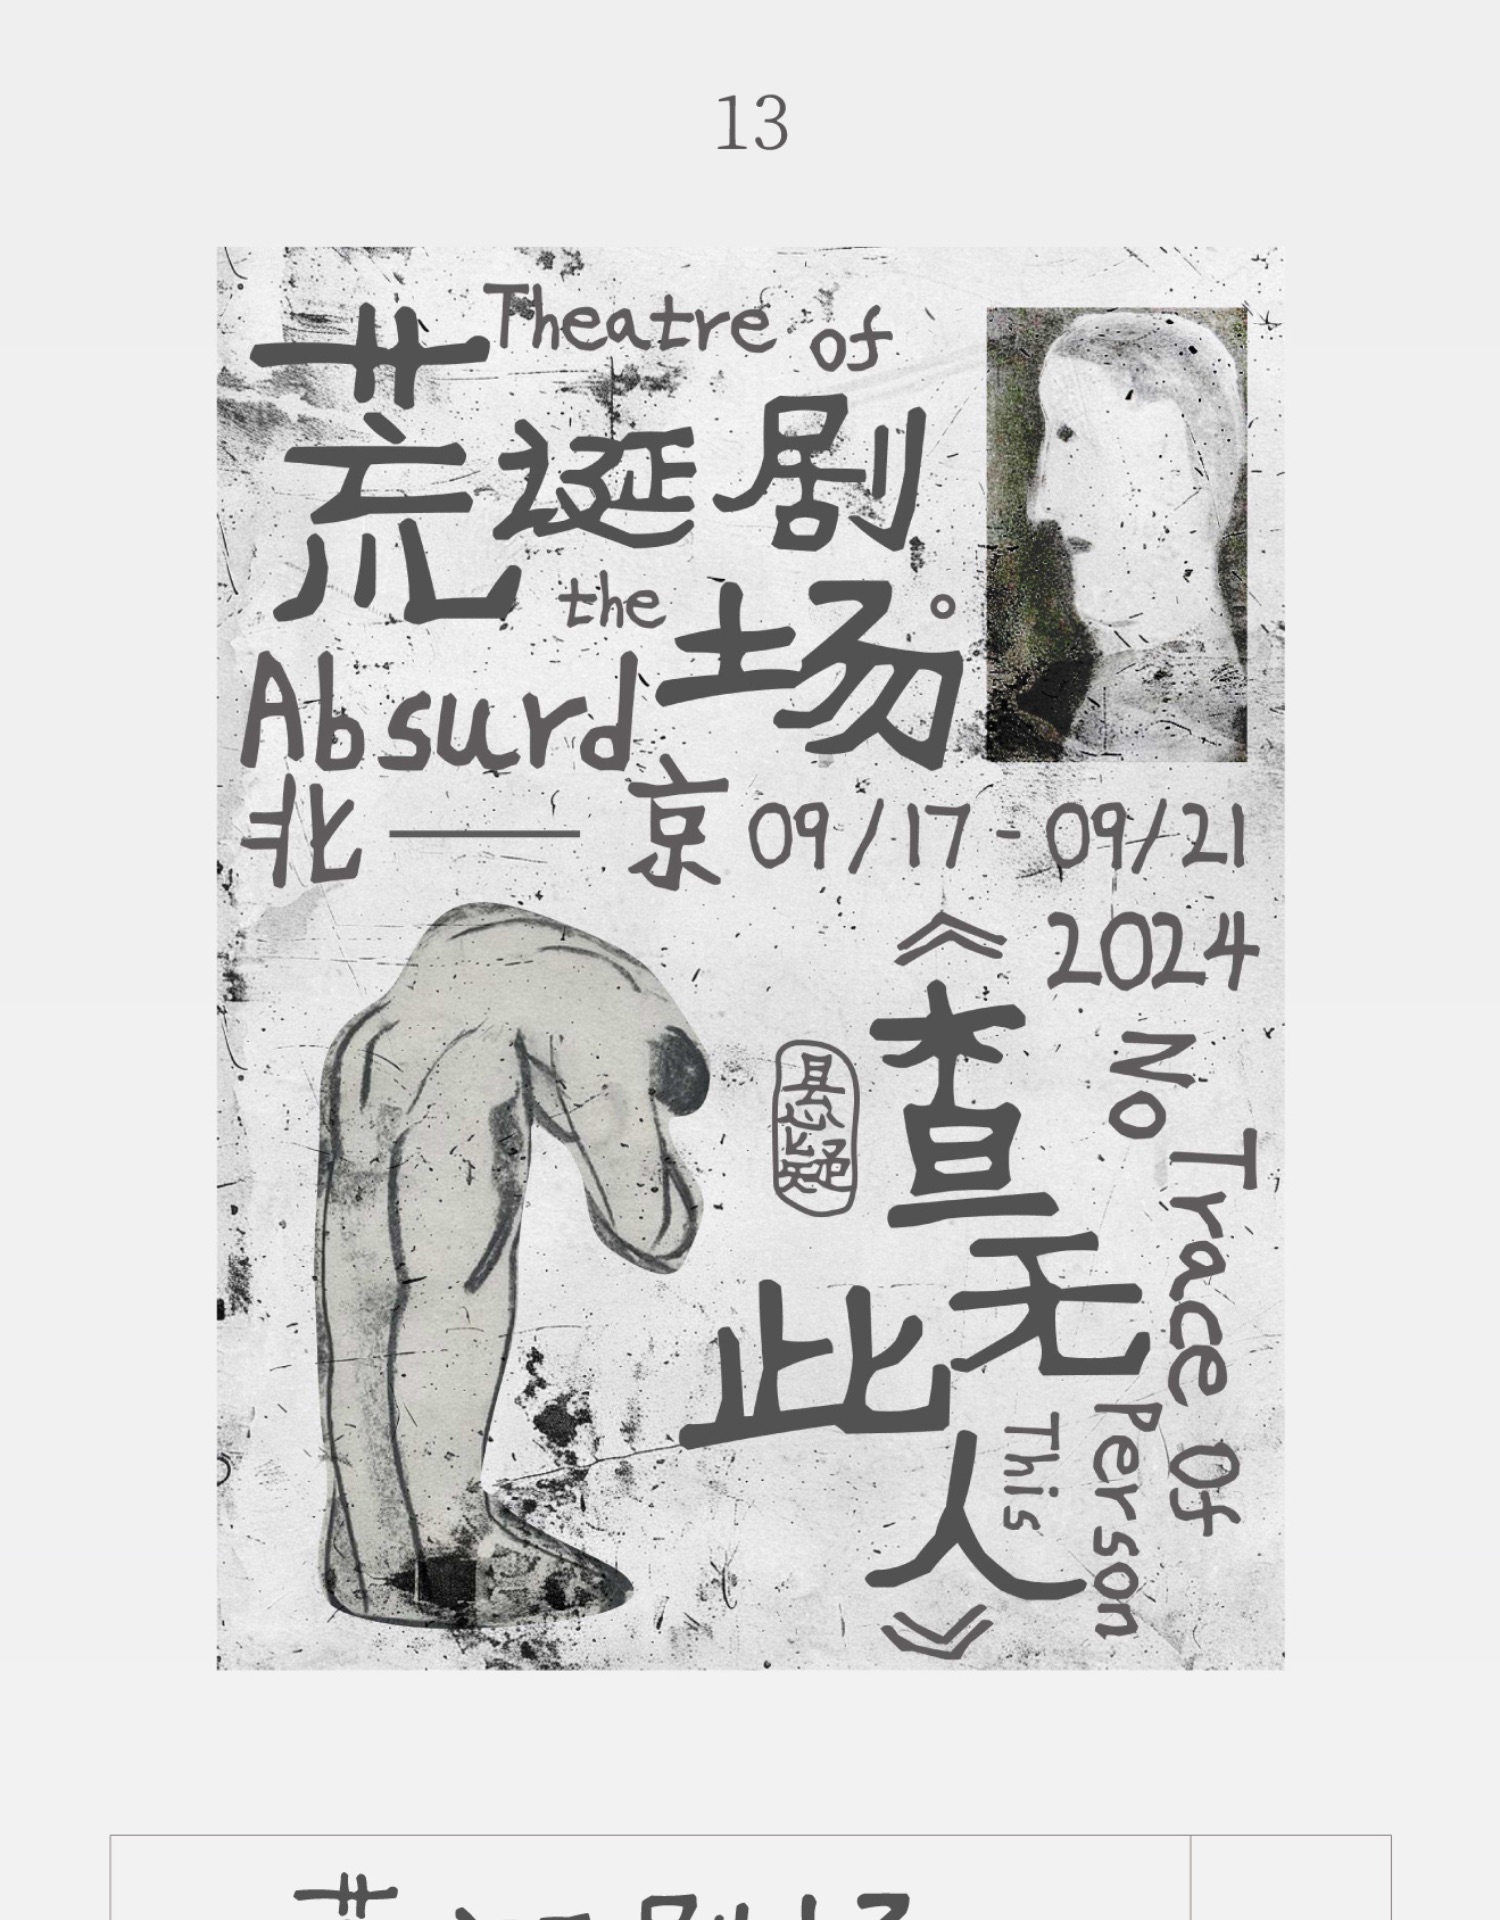 13
Theatre of
荒诞剧场
the
Absurd
北——京
09/17-09/21
2024
《查无此人》
悬疑
No
Trace Of
This
Person